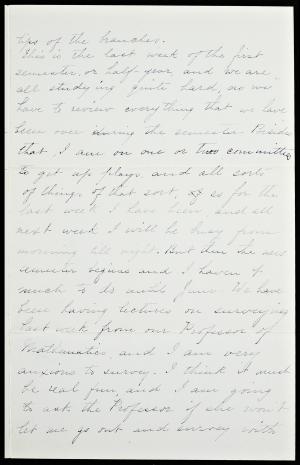 tips of the branches.
This is the last week of the first
semester, or half-year, and we are
all studying quite hard, as we
have to review everything that we have
been over during the semester. Besides
that, I am on one or two committees
to get up plays, and all sorts
of things of that sort, so for the
last week I have been, and all
next week I will be busy from
morning till night. But then the new
semester begins and I haven't
much to do until June. We have
been having lectures on surveying
last week from our Professor of
Mathematics, and I am very
anxious to survey. I think it must
be real fun, and I am going
to ask the Professor if she won't
let me go out and survey with